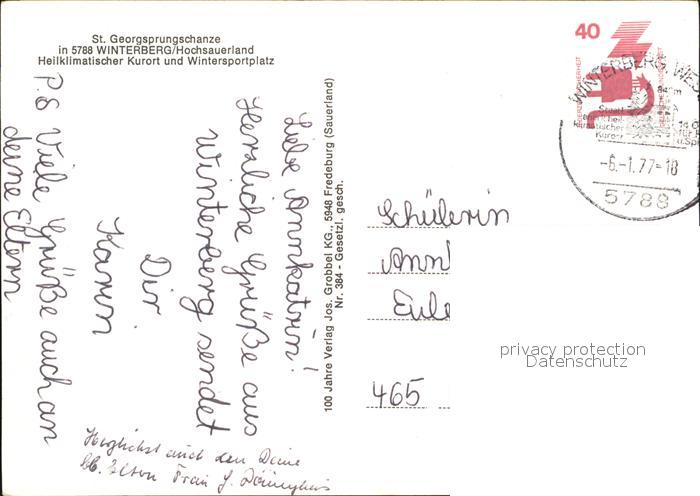 St. Georgsprungschanze
in 5788 WINTERBERG/Hochsauerland
Heilklimatischer Kurort und Wintersportplatz
Liebe Annkatrin!
Herzliche Grüße aus
Winterberg sendet
Dir
Karin
P.S Viele Grüße auch an
deine Eltern
Herzlichst auch den Deine
lb. Eltern Frau J.
100 Jahre Verlag Jos. Grobbel KG., 5948 Fredeburg (Sauerland)
Nr. 384 - Gesetzl. gesch.
40
WINTERBERG, WES
-6.-1.77-18
5788
Schülerin
Ann
Eule
465
privacy protection
Datenschutz